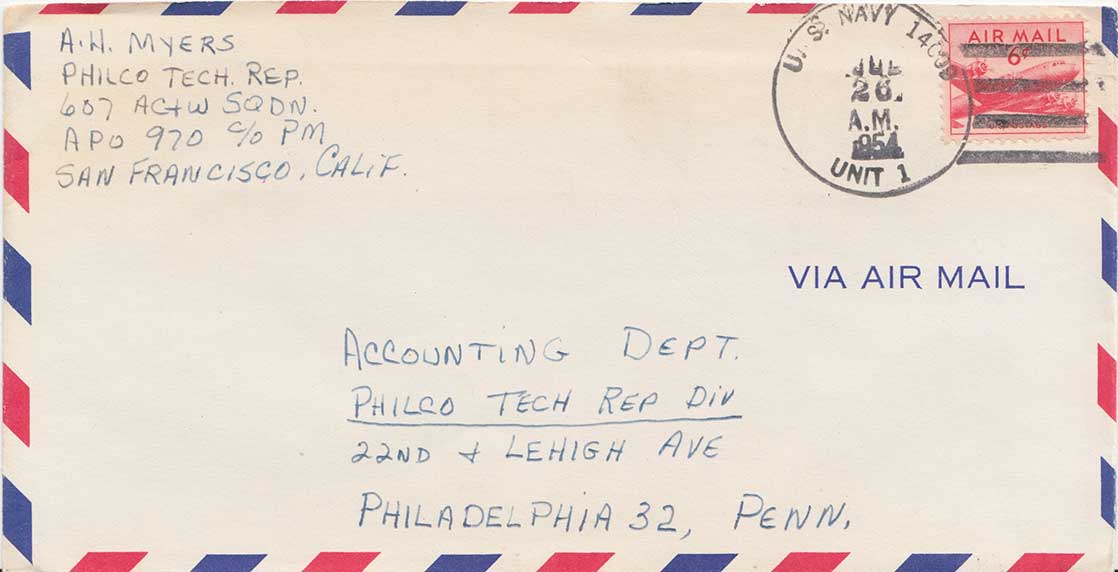 A.H. MYERS
PHILCO TECH. REP.
607 AC+W SQDN.
APO 970 C/O PM
SAN FRANCISCO, CALIF.
U. S. NAVY
JUL
26
A.M.
1954
UNIT 1
AIR MAIL
6¢
VIA AIR MAIL
ACCOUNTING DEPT.
PHILCO TECH REP DIV
22ND + LEHIGH AVE
PHILADELPHIA 32, PENN.